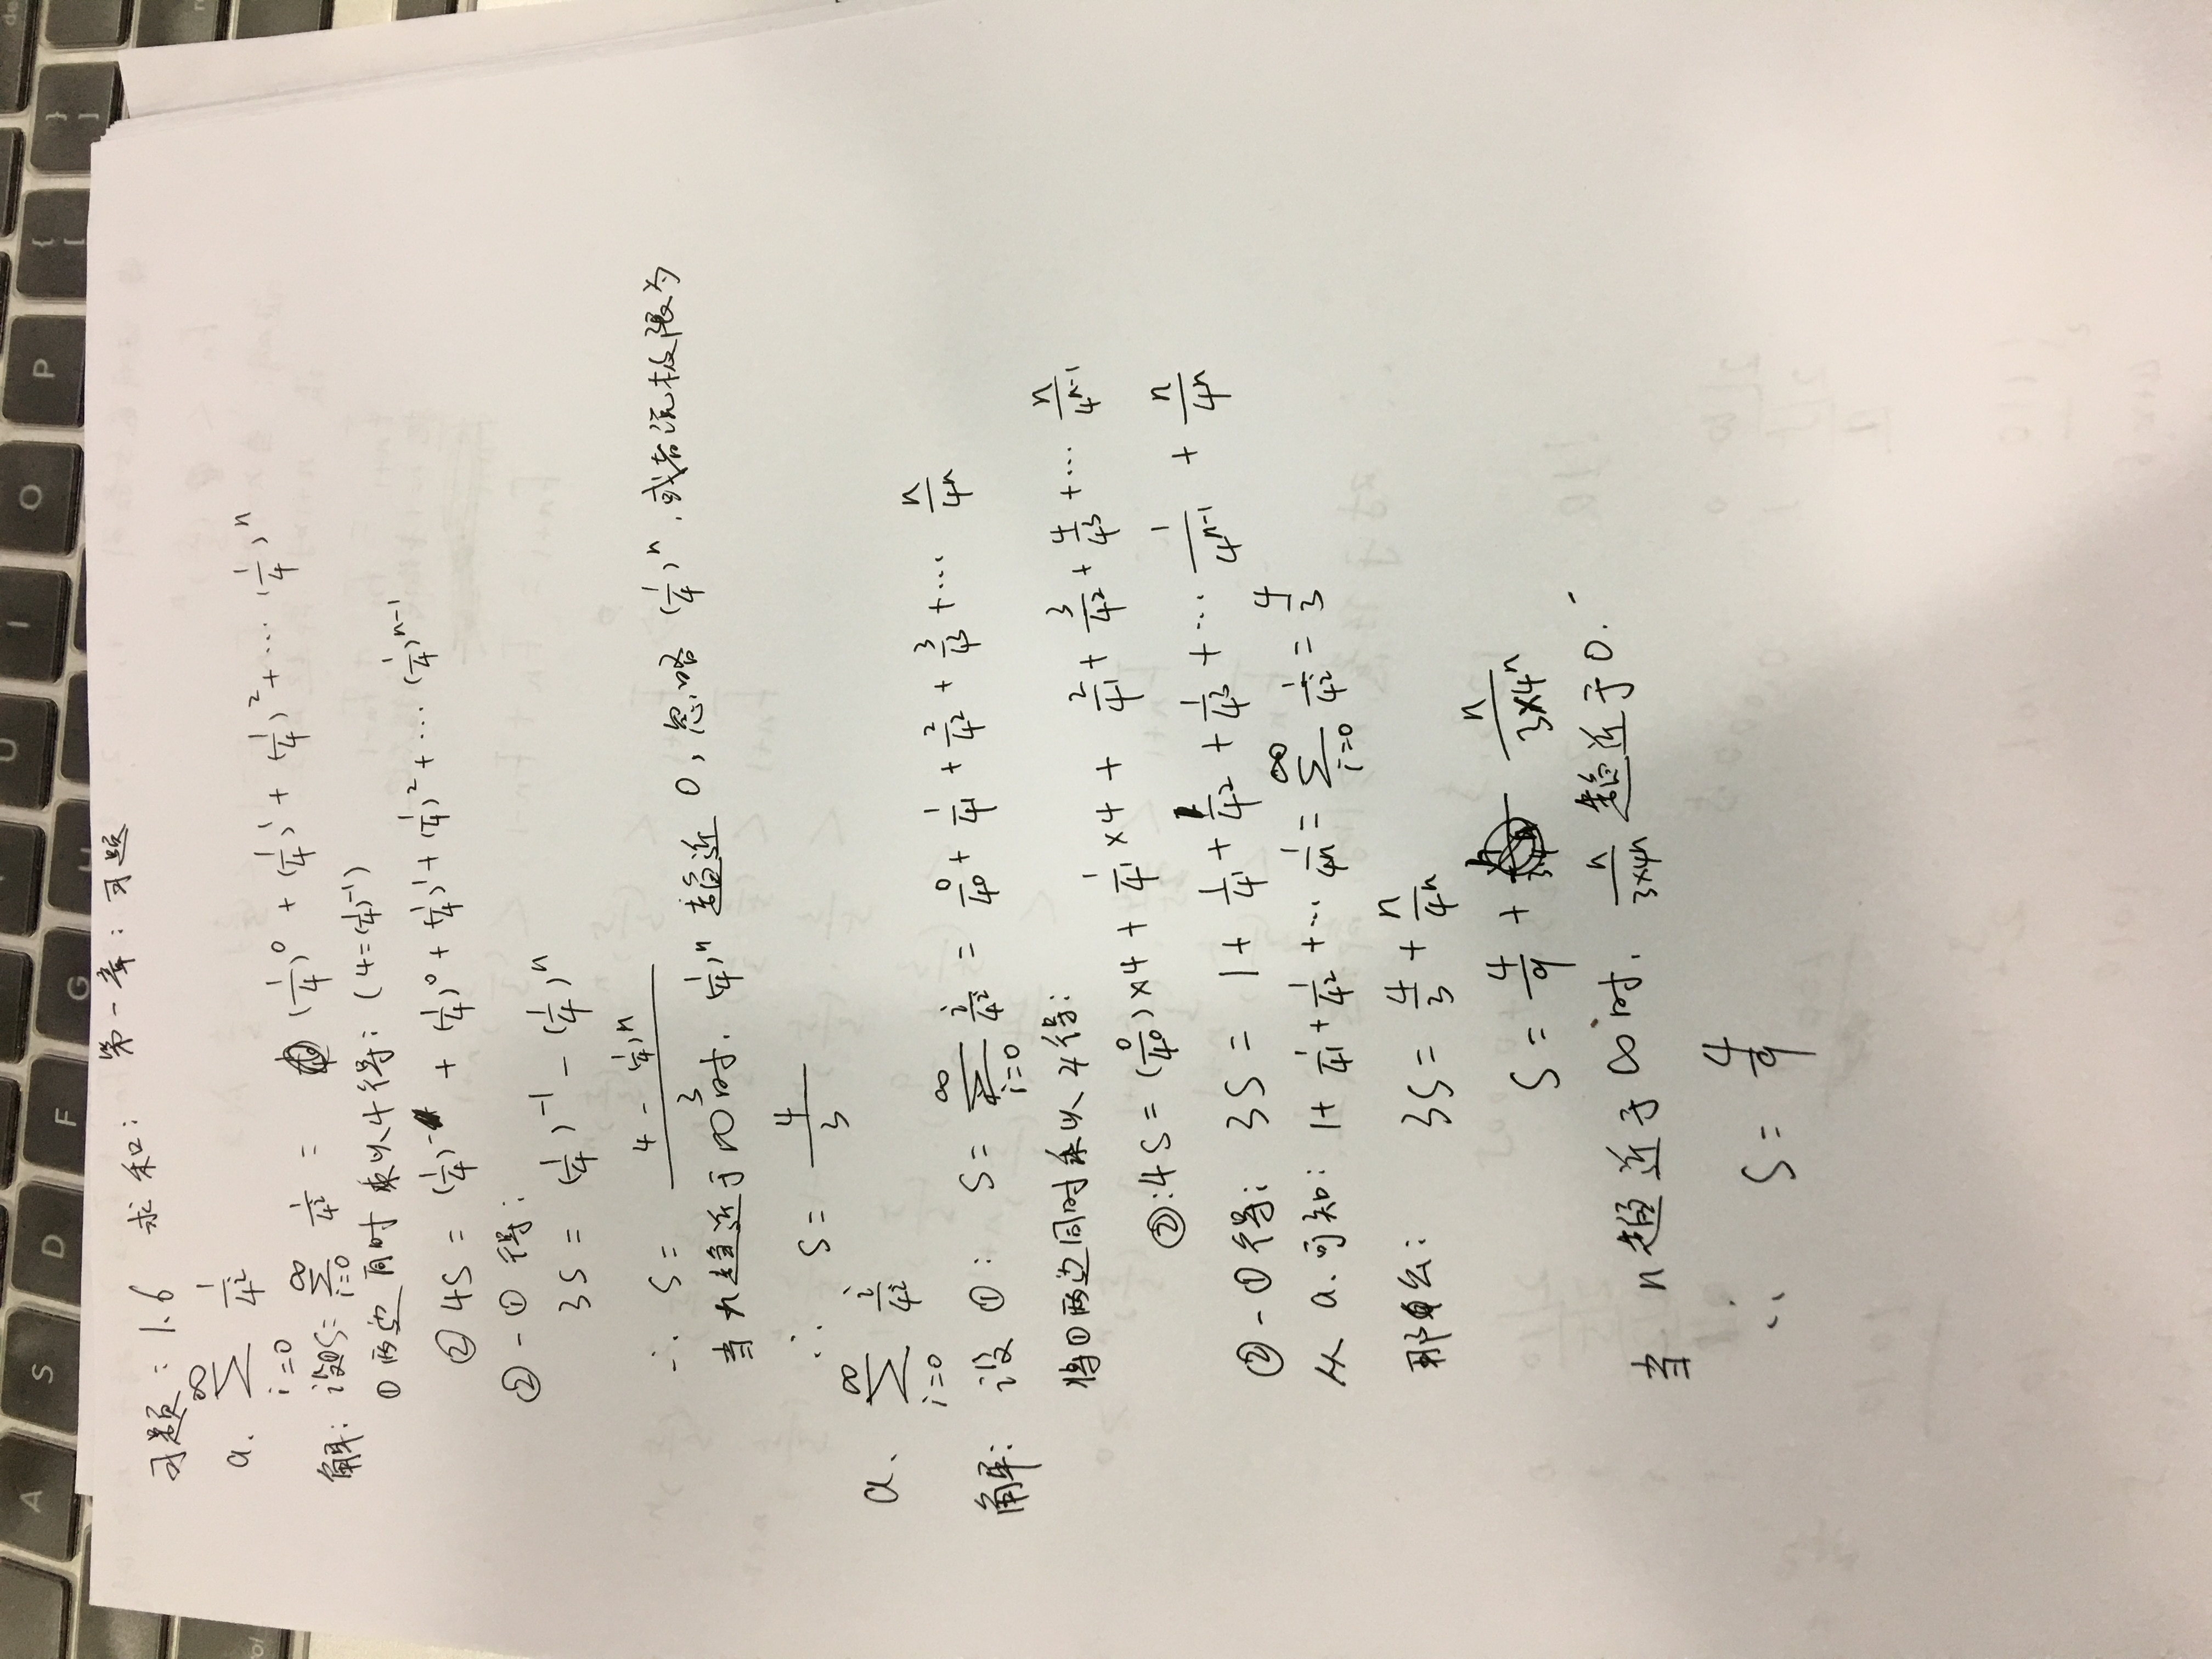 A S D F G U I O P { [ } ]
第一章：习题
习题：1.6 求和：
a. ∑_{i=0}^{∞} 1/4^i
解：设①S=∑_{i=0}^{∞} 1/4^i = (1/4)^0 + (1/4)^1 + (1/4)^2 + … (1/4)^n
①两边同时乘以4得：(4=(1/4)^{-1})
②4S = (1/4)^{-1} + (1/4)^0 + (1/4)^1 + (1/4)^2 + … (1/4)^{n-1}
②-①得：
3S = (1/4)^{-1} - (1/4)^n
∴ S = (4 - (1/4)^n)/3
当n趋近于∞时，(1/4)^n 趋近0，忽略(1/4)^n，或者说极限为
∴ S = 4/3
a. ∑_{i=0}^{∞} i/4^i
解：设①：S = ∑_{i=0}^{∞} i/4^i = 0/4^0 + 1/4^1 + 2/4^2 + 3/4^3 + … n/4^n
将①两边同时乘以4得：
②：4S = (0/4^0)×4 + 1/4^1×4 + 2/4^1 + 3/4^2 + 4/4^3 + … n/4^{n-1}
②-①得：3S = 1 + 1/4^1 + 1/4^2 + 1/4^3 + … 1/4^{n-1} + n/4^n
从a.可知：1 + 1/4^1 + 1/4^2 + … 1/4^n = ∑_{i=0}^{∞} 1/4^i = 4/3
那么：3S = 4/3 + n/4^n
S = 4/9 + n/(3×4^n)
当n趋近于∞时，n/(3×4^n) 趋近于0.
∴ S = 4/9